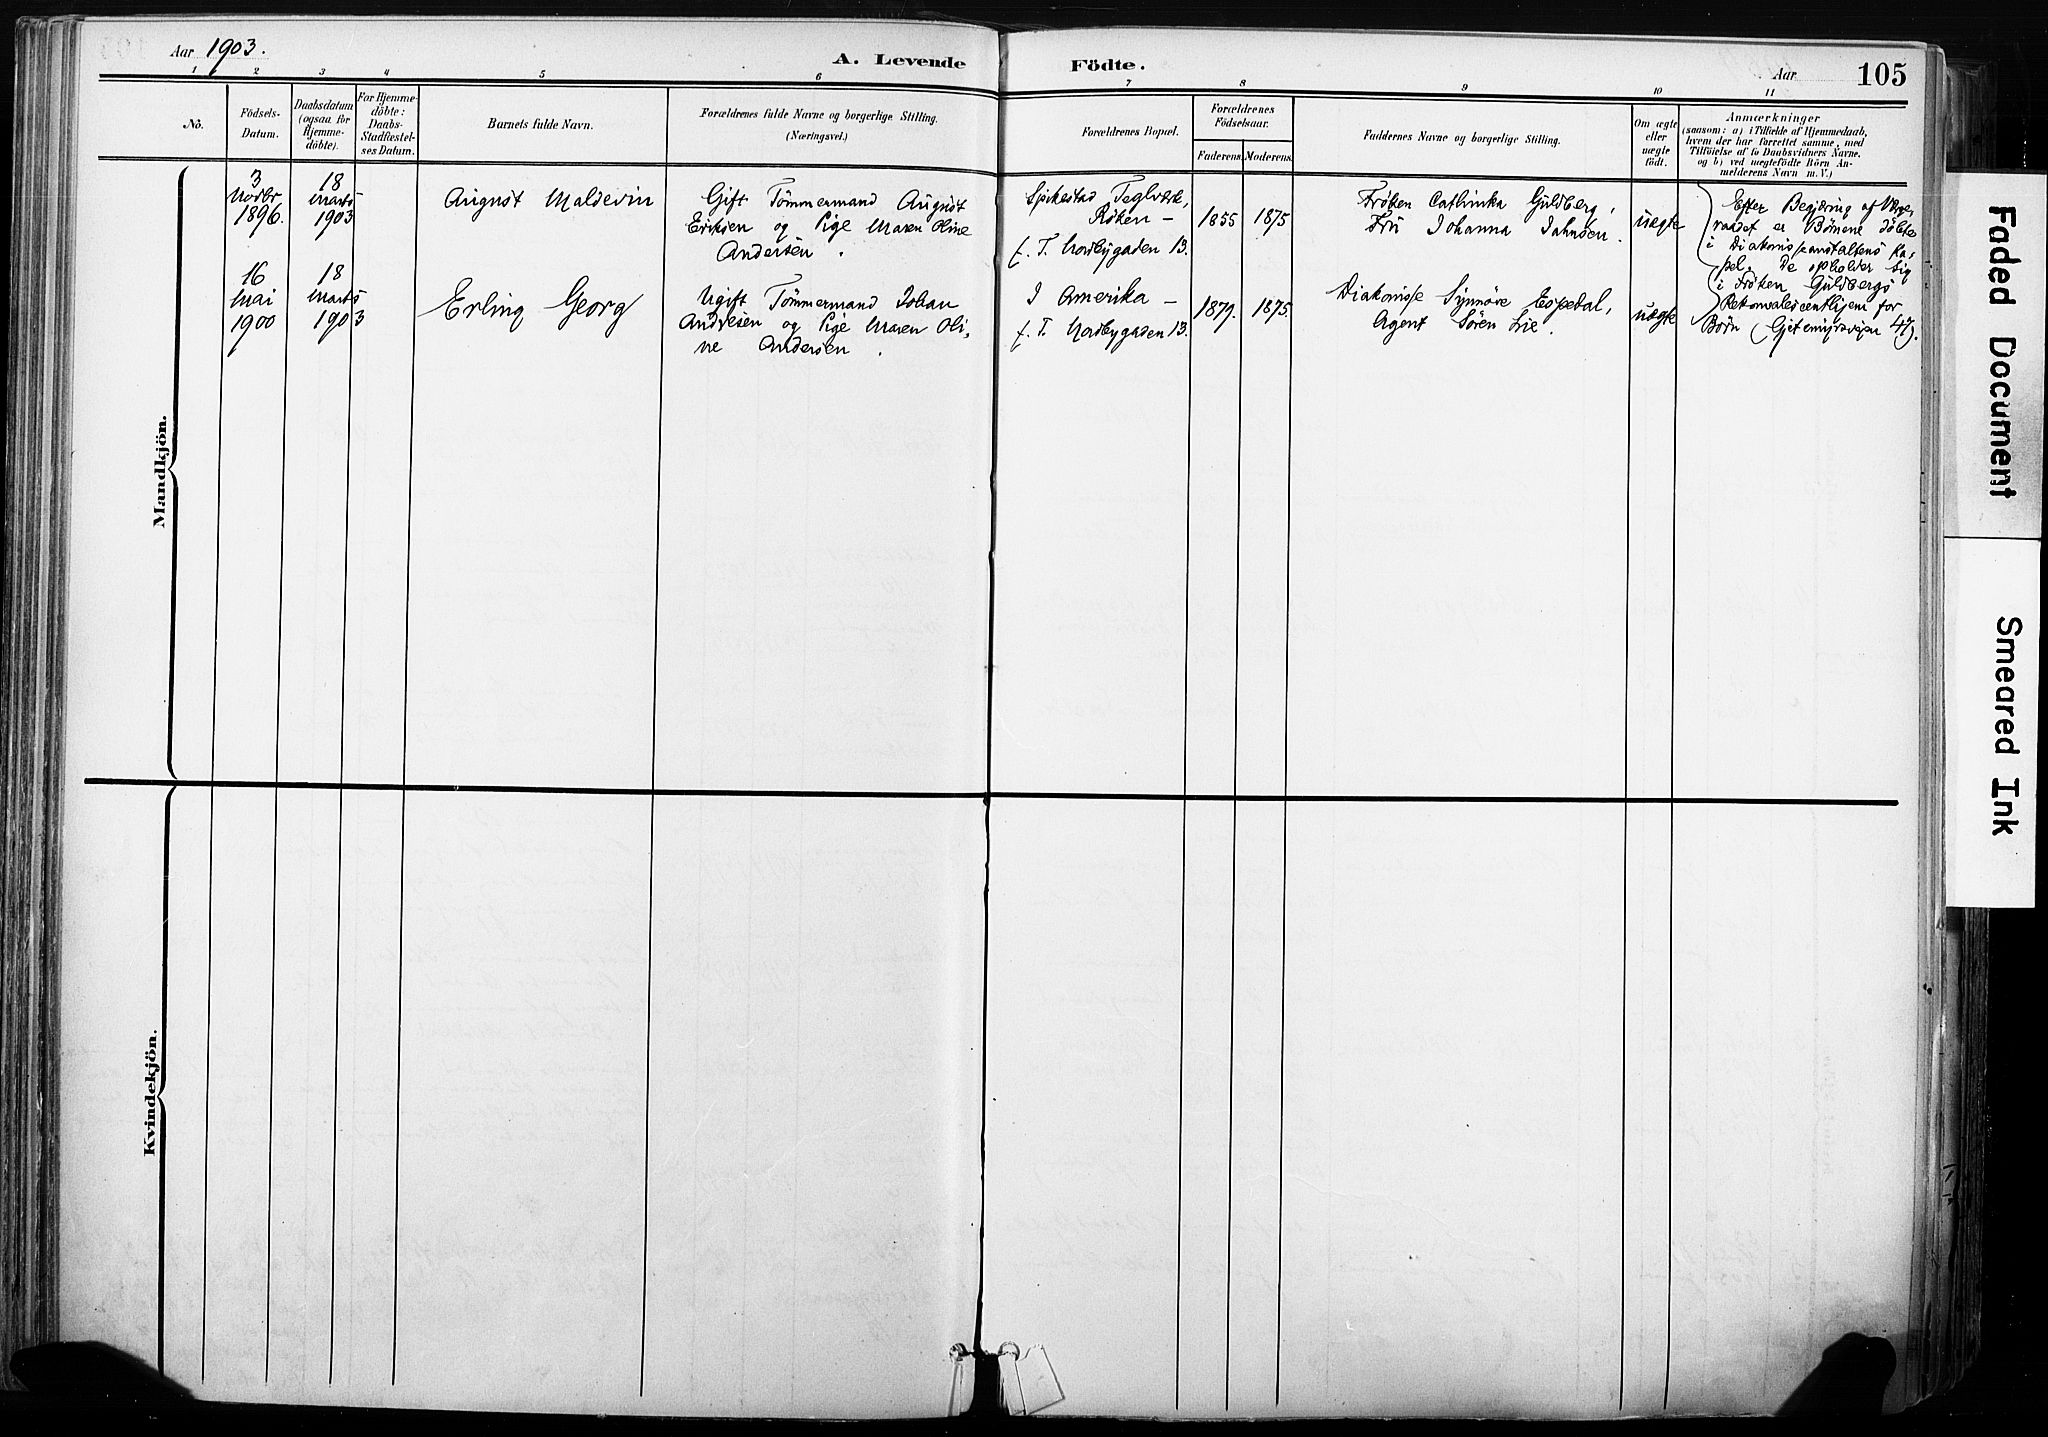 Aar 1903.
A. Levende Födte.
Aar 105
1 2 3 4 5 6 7 8 9 10 11
No.
Födsels-
Datum.
Daabsdatum
(ogsaa for
Hjemme-
döbte).
For Hjemme-
döbte:
Daabs-
Stadfæstel-
ses Datum.
Barnets fulde Navn.
Forældrenes fulde Navne og borgerlige Stilling.
(Næringsvei.)
Forældrenes Bopæl.
Forældrenes
Födselsaar.
Faderens.
Moderens.
Faddernes Navne og borgerlige Stilling.
Om ægte
eller
uægte
födt.
Anmærkninger
(saasom: a) i Tilfælde af Hjemmedaab,
hvem der har forrettet samme, med
Tilföielse af to Daabsvidners Navne,
og b) ved uægtefödte Börn An-
melderens Navn m. V.)
Mandkjön.
3
Novbr
1896.
18
Marts
1903
August Maldevin
Gift Tömmermand August
Eriksen og Pige Maren Oline
Andersen.
Spikestad Teglverk,
Röken —
f. T. Nordbygaden 13.
1855
1875
Fröken Cathinka Guldberg,
Fru Johanna Jahnsen.
uægte
Efter Begjæring af Værge-
raadet er Börnene döbte
i Diakonisseanstaltens Ka-
pel. De opholder sig
i Fröken Guldbergs
Rekonvalescenthjem for
Börn (Gjetemyrsveien 47).
16
Mai
1900
18
Marts
1903
Erling Georg
Ugift Tömmermand Johan
Andresen og Pige Maren Oli-
ne Andersen.
I Amerika —
f. T. Nordbygaden 13.
1879.
1875.
Diakonisse Synnöve Espedal,
Agent Sören Lie.
uægte
Kvindekjön.
Faded Document
Smeared Ink